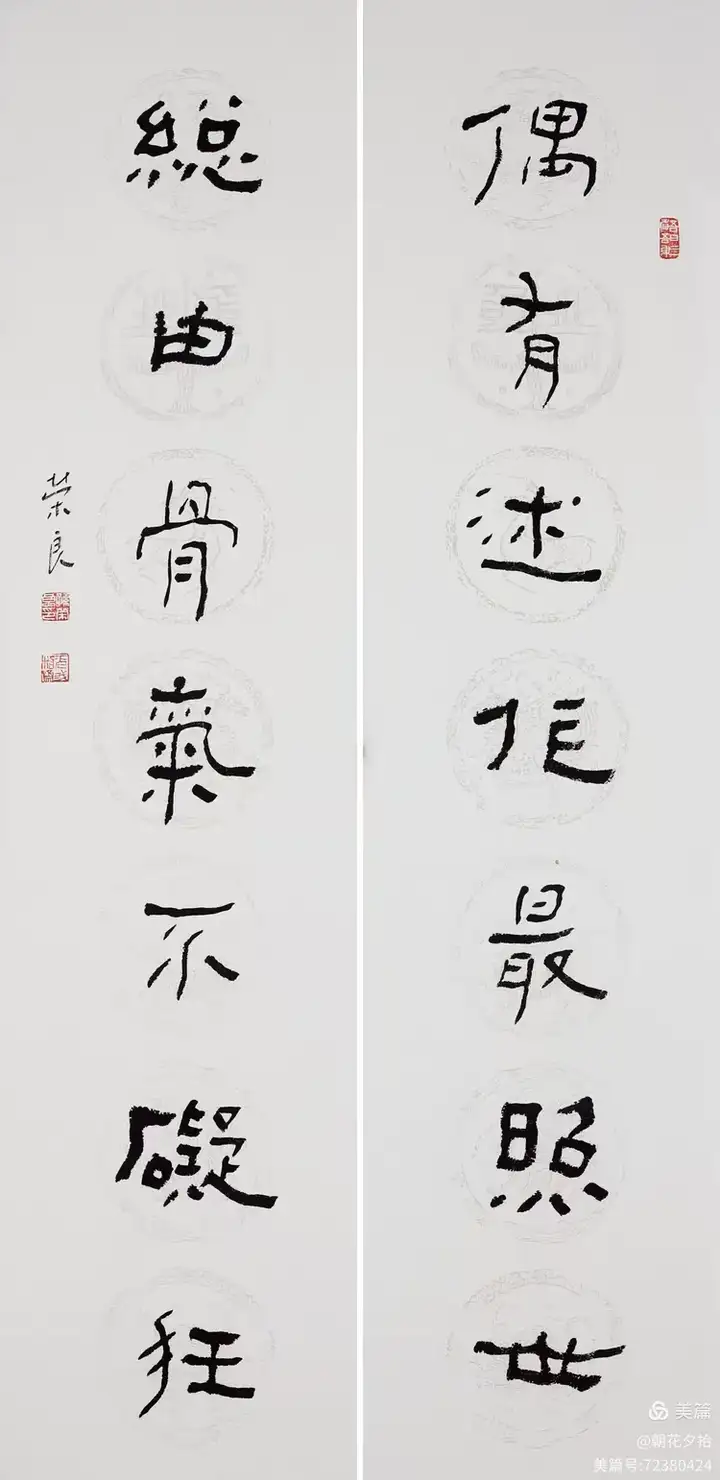 偶有述作最照世
總由骨氣不礙狂
荣良
美篇
@朝花夕拾
美篇号:72380424